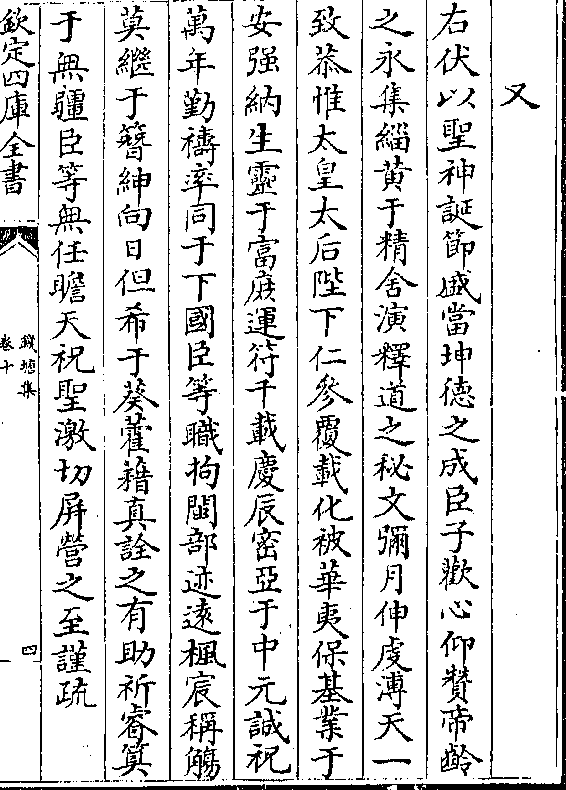 又
右伏以聖神誕節盛當坤德之成臣子歡心仰贊帝齡
之永集緇黄于精舍演釋道之秘文彌月伸虔溥天一
致恭惟太皇太后陛下仁參覆載化被華夷保基業于
安强納生靈于富庶運符千載慶辰密亞于中元誠祝
萬年勤禱率同于下國臣等職拘閩部迹遠楓宸稱觴
莫繼于簪紳向日但希于葵藿藉真詮之有助祈睿筭
于無疆臣等無任瞻天祝聖激切屏營之至謹疏
欽定四庫全書
錢塘集
卷十
四